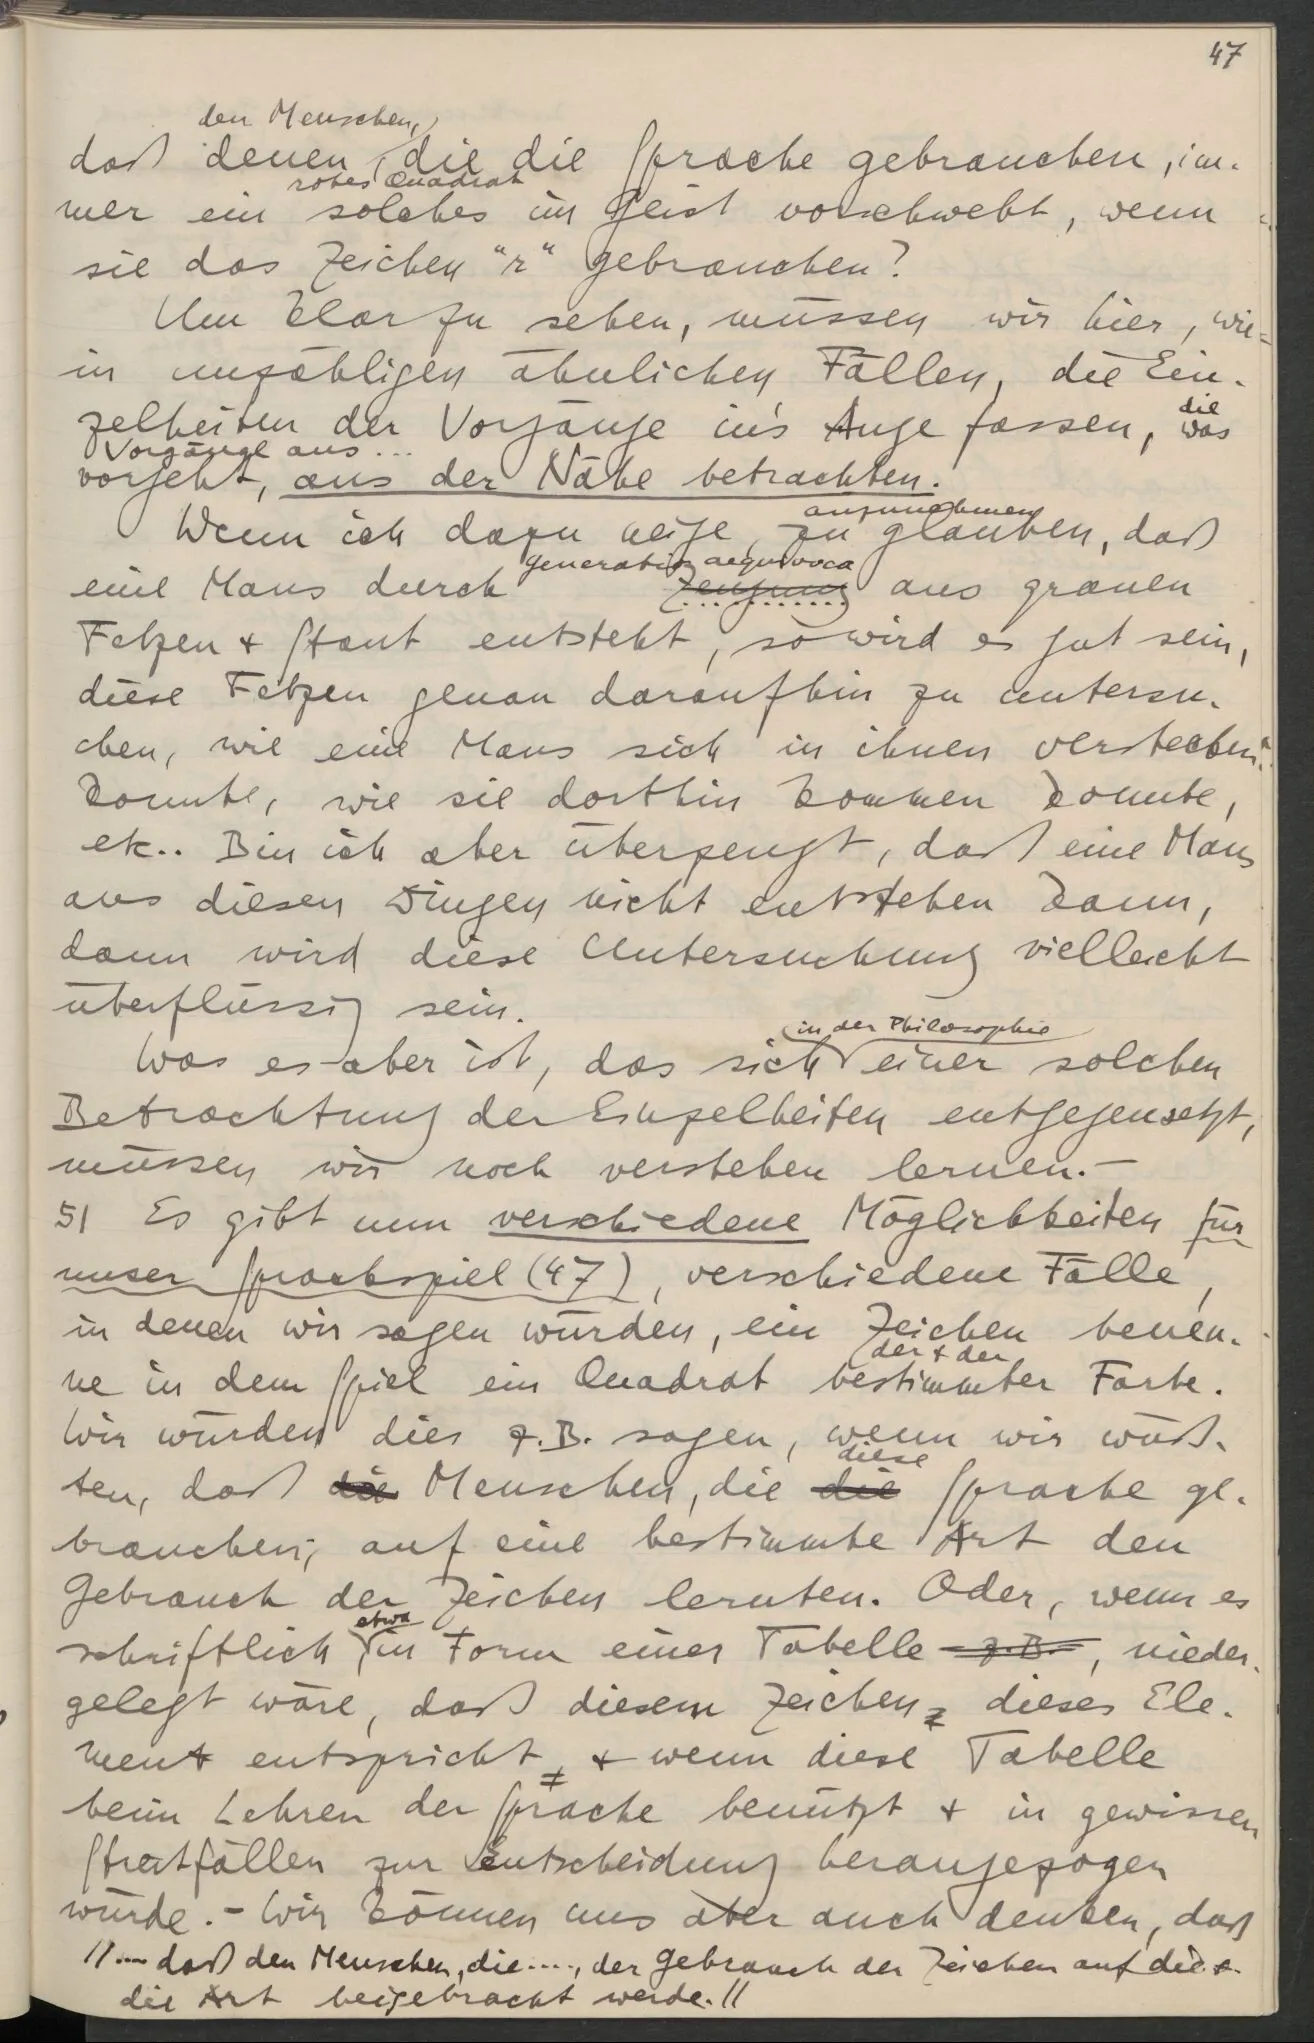 47
den Menschen,
daß denen, die die Sprache gebrauchen, im-
rotes Quadrat
mer ein solches im Geist vorschwebt, wenn
sie das Zeichen "r" gebrauchen?
Um klar zu sehen, müssen wir hier, wie
in unzähligen ähnlichen Fällen, die Ein-
zelheiten der Vorgänge in's Auge fassen, was
die
Vorgänge aus ...
vorgeht, aus der Nähe betrachten.
anzunehmen
Wenn ich dazu neige, zu glauben, daß
generatio aequivoca
eine Maus durch Zeugung aus grauen
Fetzen + Staub entsteht, so wird es gut sein,
diese Fetzen genau daraufhin zu untersu-
chen, wie eine Maus sich in ihnen verstecken
konnte, wie sie dorthin kommen konnte,
etc.. Bin ich aber überzeugt, daß eine Maus
aus diesen Dingen nicht entstehen kann,
dann wird diese Untersuchung vielleicht
überflüssig sein.
in der Philosophie
Was es aber ist, das sich einer solchen
Betrachtung der Einzelheiten entgegensetzt,
müssen wir noch verstehen lernen.—
51 Es gibt nun verschiedene Möglichkeiten für
unser Sprachspiel (47), verschiedene Fälle,
in denen wir sagen würden, ein Zeichen benen-
der + der
ne in dem Spiel ein Quadrat bestimmter Farbe.
Wir würden dies z.B. sagen, wenn wir wüß-
diese
ten, daß die Menschen, die die Sprache ge-
brauchen, auf eine bestimmte Art den
Gebrauch der Zeichen lernten. Oder, wenn es
etwa
schriftlich, in Form einer Tabelle z.B., nieder-
gelegt wäre, daß diesem Zeichen dieses Ele-
ment entspricht, + wenn diese Tabelle
beim Lehren der Sprache benützt + in gewissen
Streitfällen zur Entscheidung herangezogen
würde.- Wir können uns aber auch denken, daß
//.... daß den Menschen, die...., der Gebrauch der Zeichen auf die +
die Art beigebracht werde.//